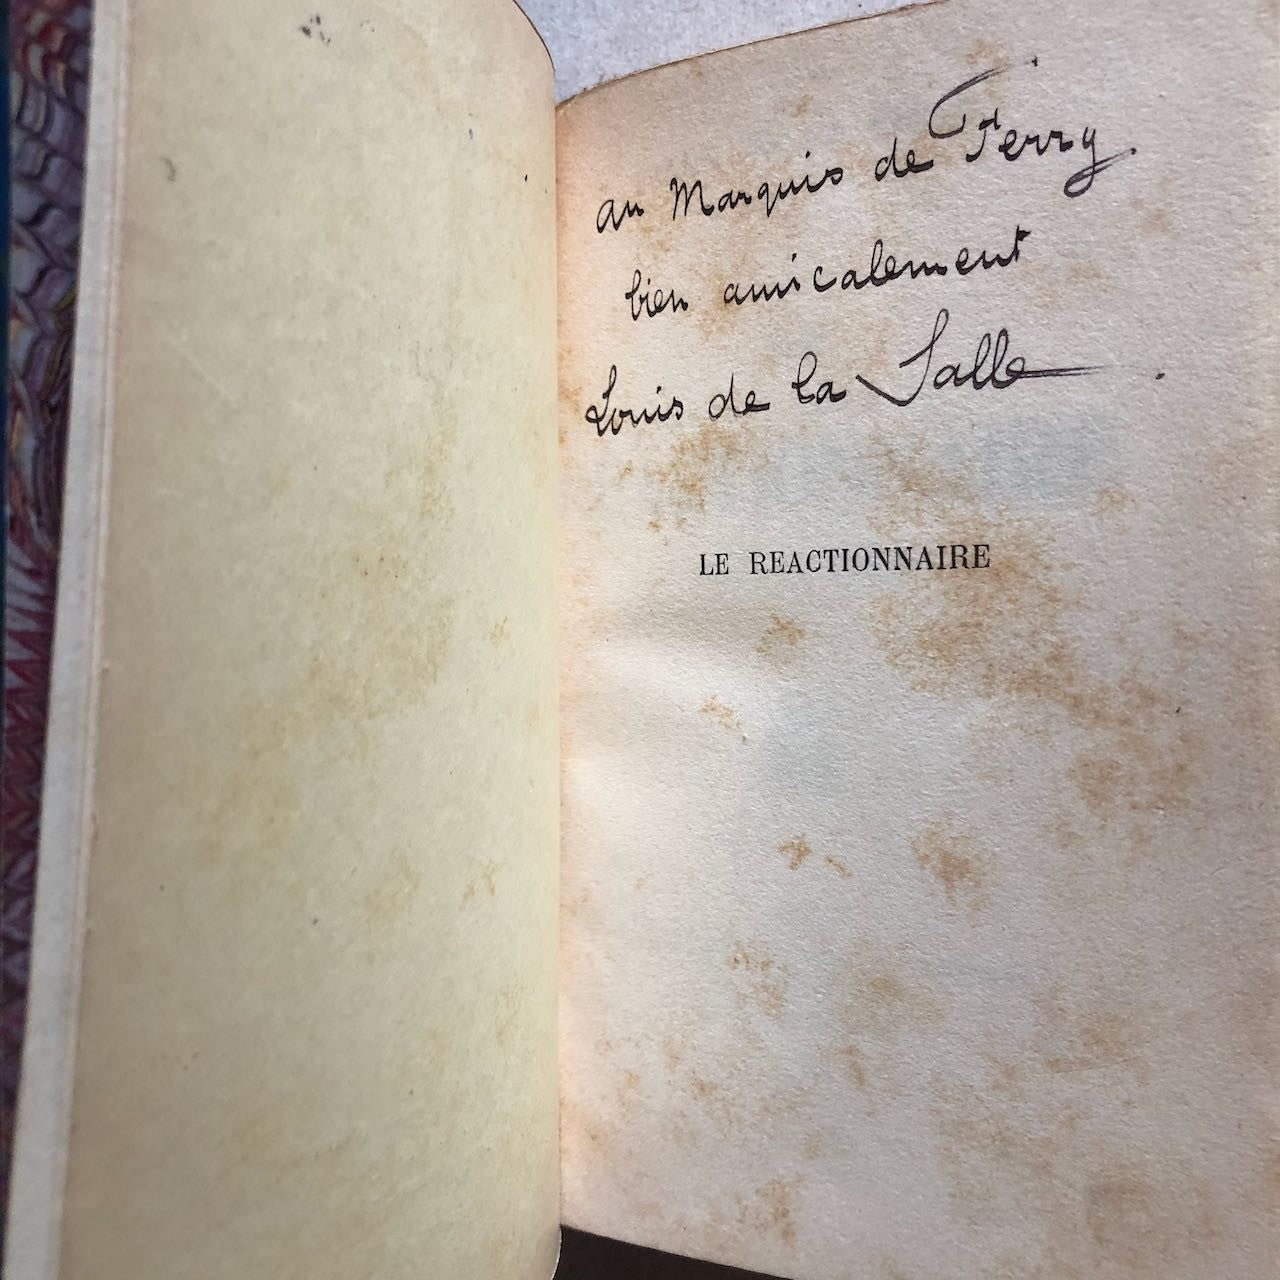 au Marquis de Fèrry.
bien amicalement
Louis de la Salle.
LE REACTIONNAIRE